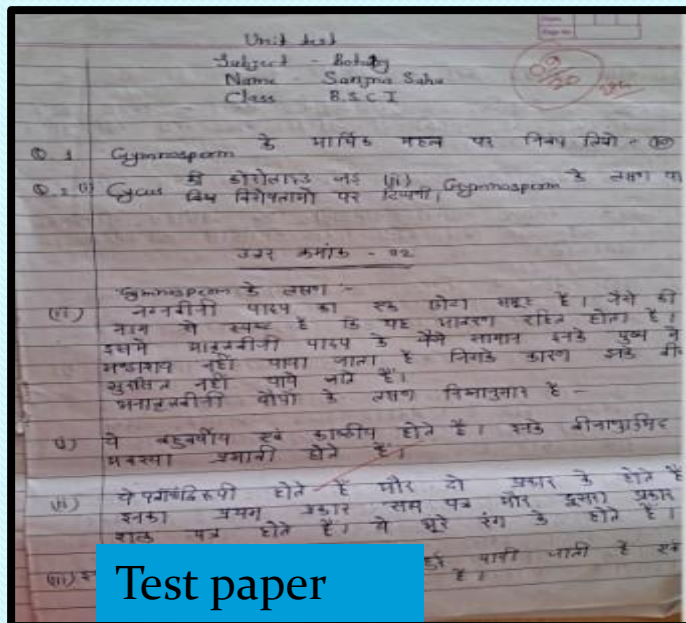 Unit test
Subject - Botany
Name - Sanjna Sahu
Class B.S.C I
09/20
Q. 1 Gymnosperm के आर्थिक महत्व पर निबंध लिखो - 10
Q. 2 (i) Cycus की कोरोलाइड जड़ (ii) Gymnosperm के लक्षण
विशेषताओं पर टिप्पणी।
उत्तर क्रमांक - 02
Gymnosperm के लक्षण :-
(ii) नग्नबीजी पादप का एक छोटा समूह है। जैसे की
नाम से स्पष्ट है कि यह आवरण रहित होता है।
इसमें आवृतबीजी पादप के जैसे सामान इनके पुष्प में
अण्डाशय नहीं पाया जाता है जिसके कारण इनके
सुरक्षित नहीं पाये जाते हैं।
अनावृतबीजी पौधों के लक्षण निम्नानुसार है -
(i) ये बहुवर्षीय एवं काष्ठीय होते है। इनके
अवस्था प्रभावी होते है।
(ii) ये होते है और दो प्रकार के होते है
इनका प्रथम प्रकार पत्र और दूसरा प्रकार
शल्क पत्र होते है। ये भूरे रंग के होते है।
(iii) पायी जाती है एवं
है।
Test paper